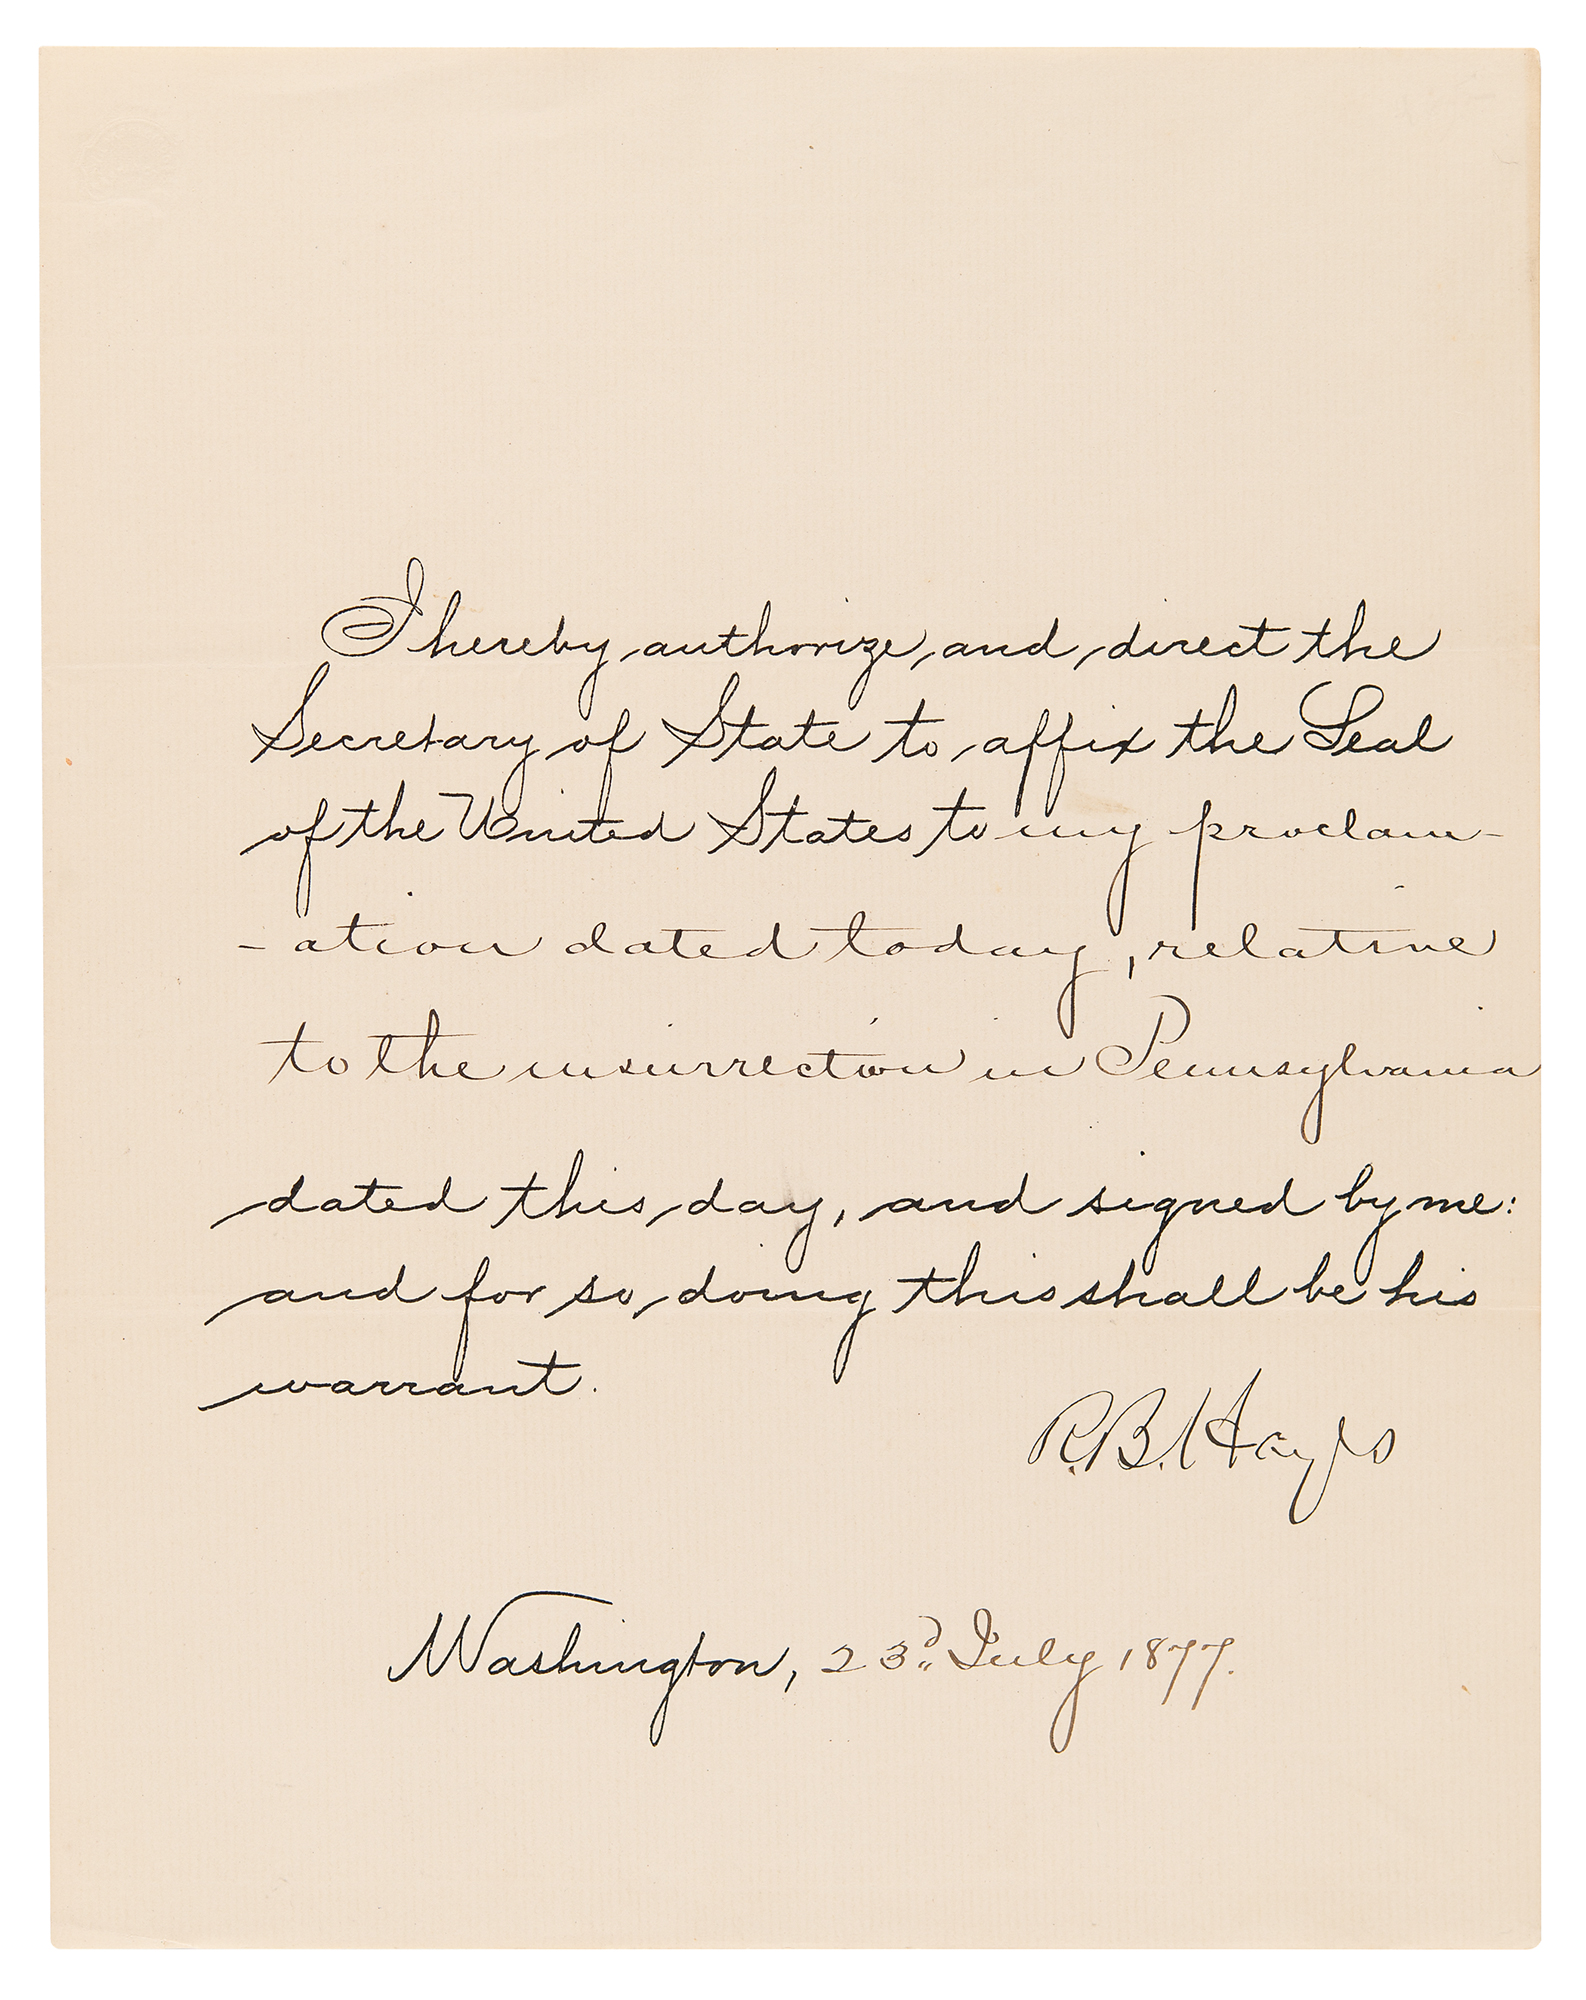 I hereby authorize and direct the
Secretary of State to affix the Seal
of the United States to my proclam-
-ation dated today, relative
to the insurrection in Pennsylvania
dated this day, and signed by me:
and for so doing this shall be his
warrant.
R.B. Hayes
Washington, 23d July 1877.